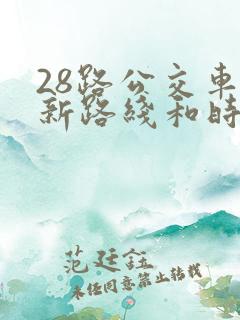 28路公交车
新路线和时
范廷钰
未经同意禁止转载